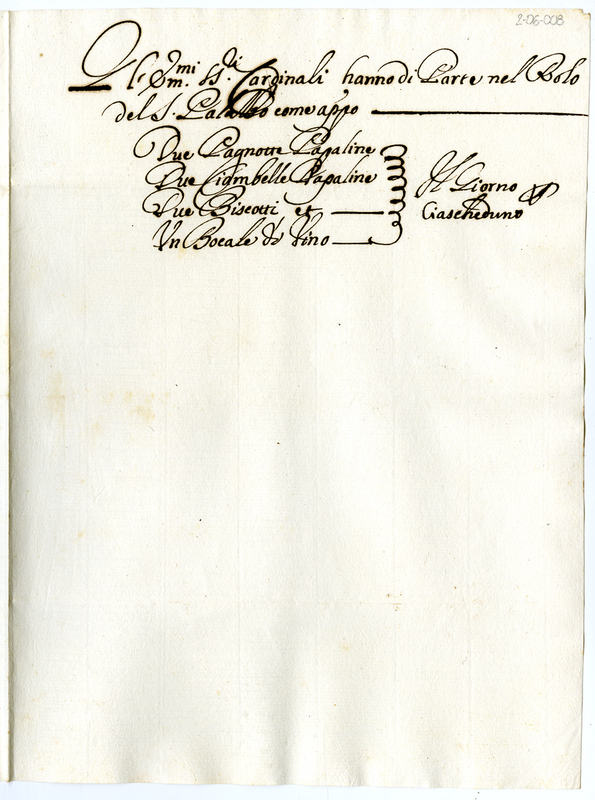 2-06-008
Gl'Em.mi SS.di Cardinali hanno di Parte nel Rolo
del S. Palazzo come app.o
Due Pagnotte Papaline
Due Ciambelle Papaline
Due Biscotti et
Un Bocale di Vino
Il Giorno p
Ciascheduno